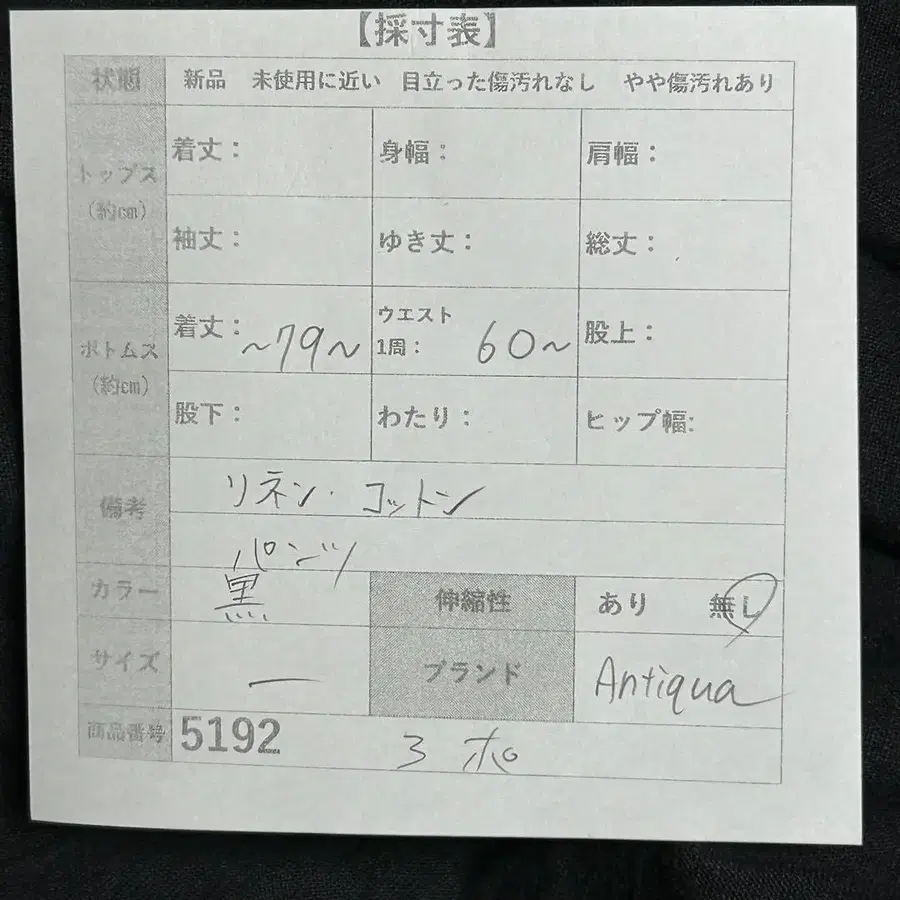 【採寸表】
状態 新品 未使用に近い 目立った傷汚れなし やや傷汚れあり
トップス
(約cm)
着丈： 身幅： 肩幅：
袖丈： ゆき丈： 総丈：
ボトムス
(約cm)
着丈： ~79~ ウエスト
1周： 60~ 股上：
股下： わたり： ヒップ幅:
備考 リネン・コットン
パンツ
カラー 黒 伸縮性 あり 無し
サイズ ー ブランド Antiqua
商品番号 5192 3 ポ